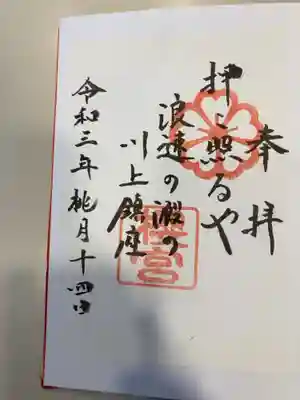 奉拝
押し照るや
浪速の淵の
川上鎮座
櫻宮
令和三年桃月十四日